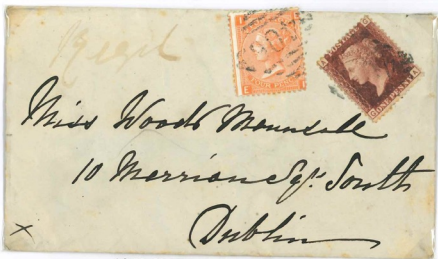 Regd
Miss Woods Maunsell
10 Merrion Sqr. South
Dublin
x